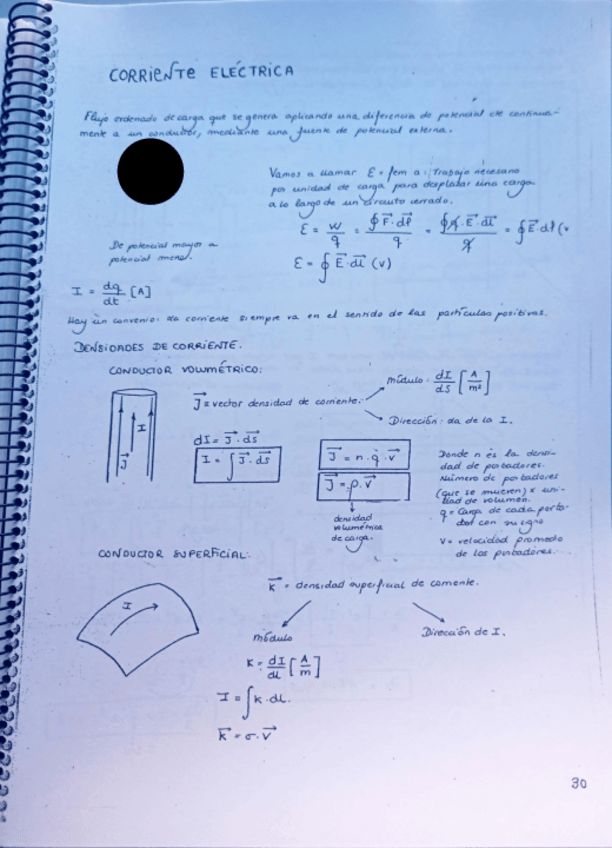 CORRIENTE ELÉCTRICA
Flujo ordenado de carga que se genera aplicando una diferencia de potencial cte continua-
mente a un conductor, mediante una fuente de potencial externa.
Vamos a llamar ε = fem a: Trabajo necesario
por unidad de carga para desplazar una carga
a lo largo de un circuito cerrado.
ε = W/q = ∮F⃗·dl⃗/q = ∮q·E⃗·dl⃗/q = ∮E⃗·dl (v
ε = ∮E⃗·dl⃗ (v)
De potencial mayor a
potencial menor.
I = dq/dt [A]
Hay un convenio: La corriente siempre va en el sentido de las partículas positivas.
DENSIDADES DE CORRIENTE.
CONDUCTOR VOLUMÉTRICO:
I
J⃗
J⃗ = vector densidad de corriente.
módulo: dI/dS [A/m²]
Dirección: La de la I.
dI = J⃗·ds⃗
I = ∫J⃗·ds⃗
J⃗ = n·q·v⃗
J⃗ = ρ·v⃗
densidad
volumétrica
de carga.
Donde n es la densi-
dad de portadores.
Número de portadores
(que se mueven) x uni-
dad de volumen.
q = Carga de cada porta-
dor con su signo
V = velocidad promedio
de los portadores.
CONDUCTOR SUPERFICIAL:
I
K⃗ = densidad superficial de corriente.
módulo
Dirección de I.
K = dI/dl [A/m]
I = ∫K·dl.
K⃗ = σ·v⃗
30